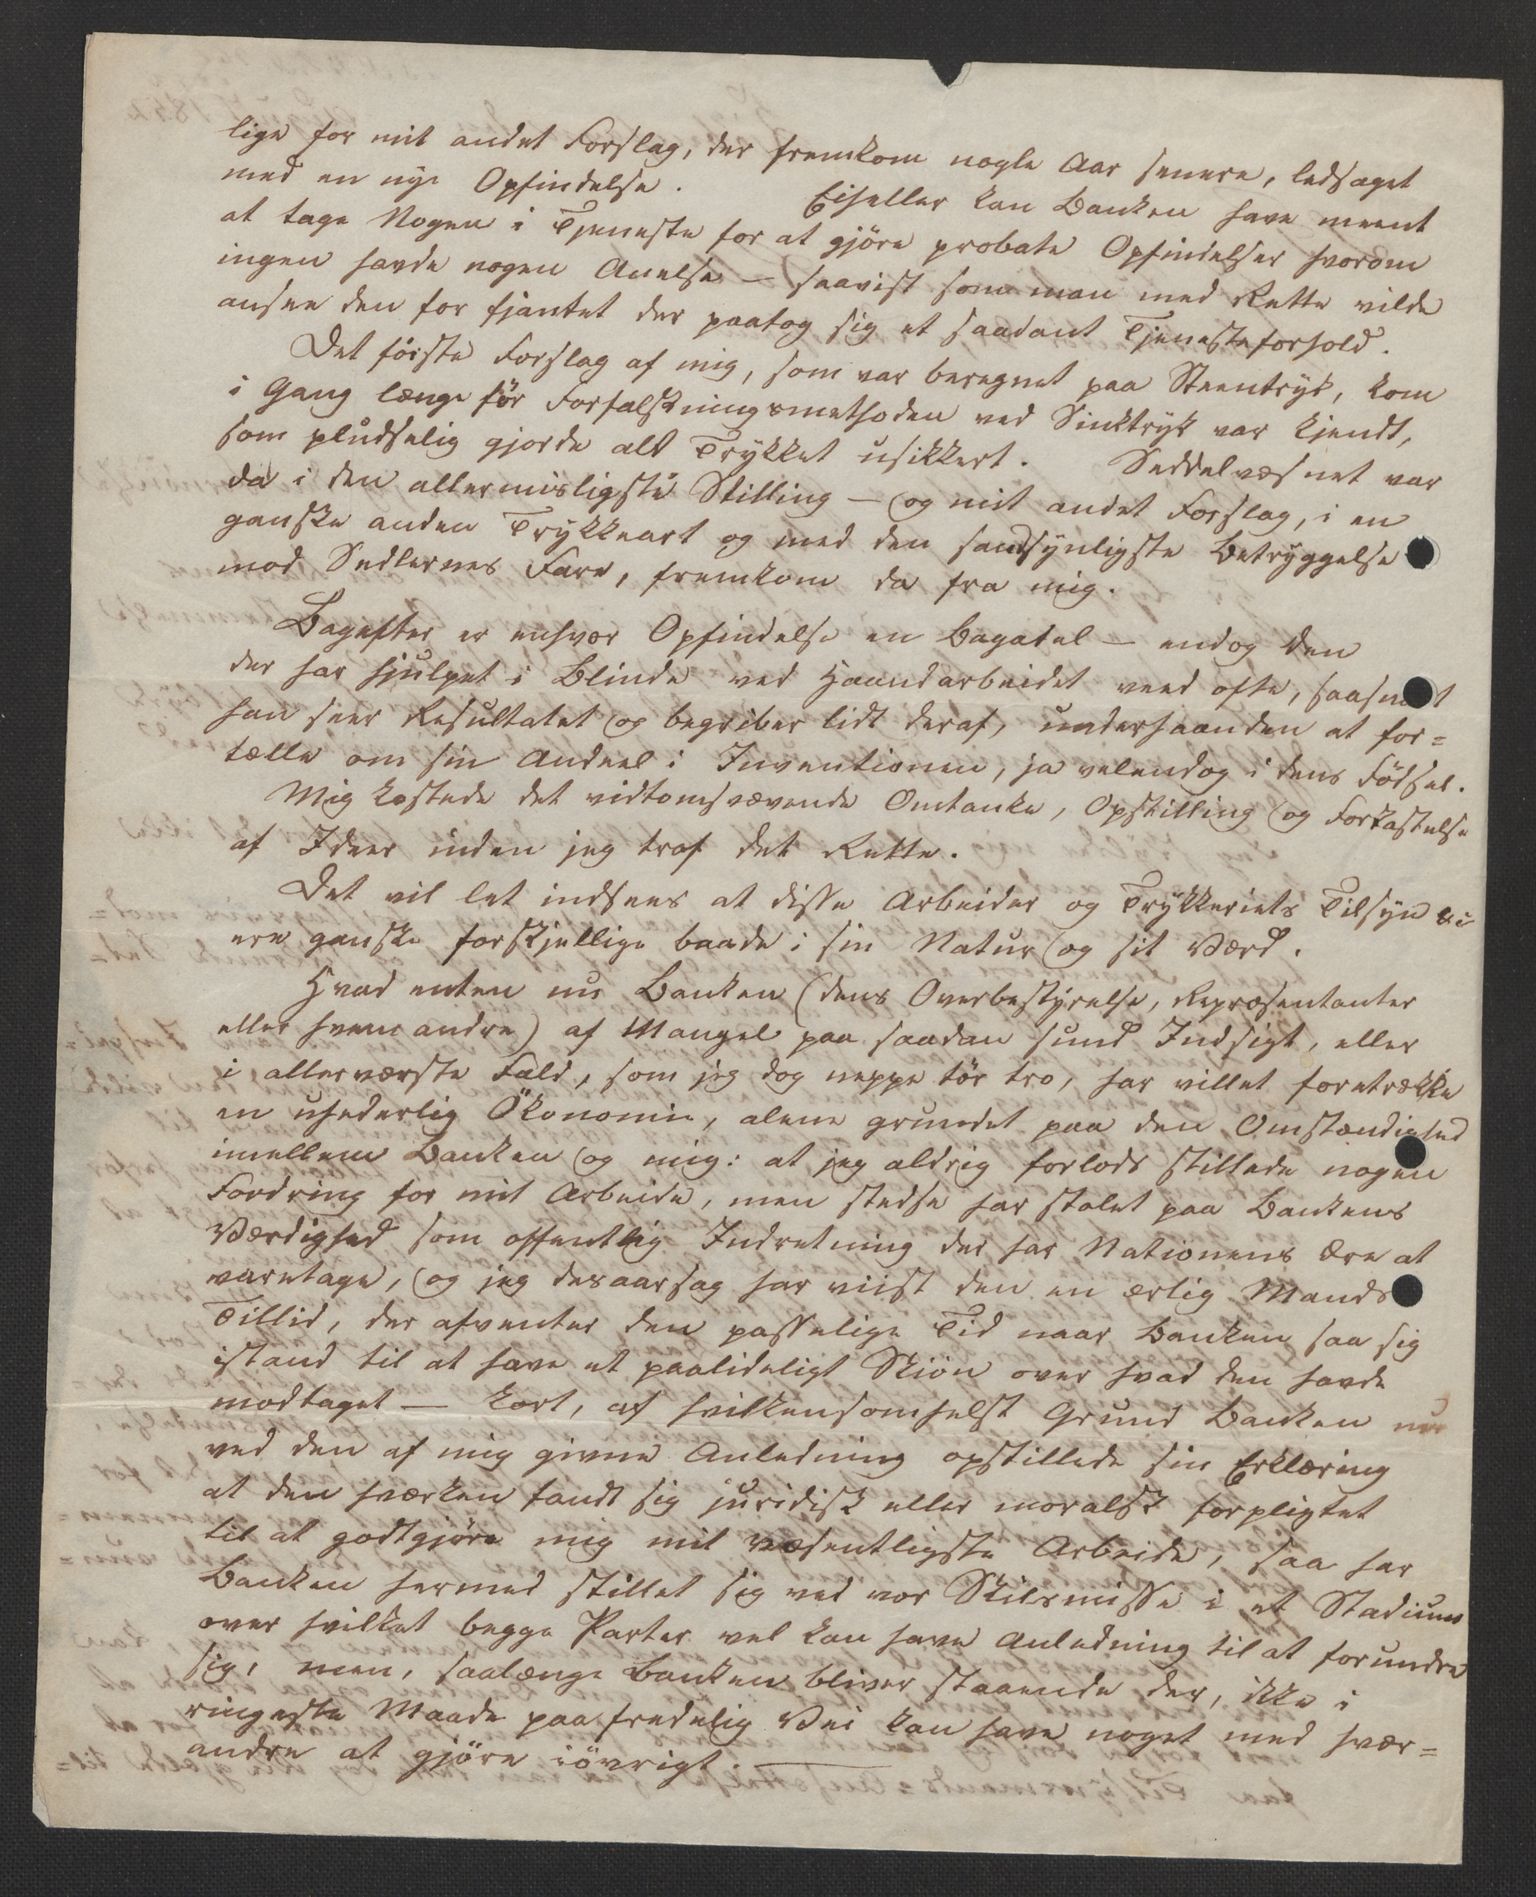 lige for mit andet Forslag, der fremkom nogle Aar senere, ledsaget
med en nye Opfindelse. Eiheller kan Banken have meent
at tage Nogen i Tjeneste for at gjöre probate Opfindelser hvorom
ingen havde nogen Anelse – saavist som man med Rette vilde
ansee den for fjantet der paatog sig et saadant Tjenesteforhold.
Det förste Forslag af mig, som var beregnet paa Steentryk, kom
i Gang længe för Forfalskningsmethoden ved Sinktryk var kjendt,
som pludselig gjorde alt Trykket usikkert. Seddelvæsnet var
da i den allermisligste Stilling – og mit andet Forslag, i en
ganske anden Trykkeart og med den sandsynligste Betryggelse
mod Sedlernes Fare, fremkom da fra mig.
Bagefter er enhver Opfindelse en Bagatel – endog den
der har hjulpet i Blinde ved Haandarbeidet veed ofte, saasnart
han seer Resultatet og begriber lidt deraf, underhaanden at for=
tælle om sin Andeel i Inventionen, ja velendog i dens Födsel.
Mig kostede det vidtomsvævende Omtanke, Opstilling og Forkastelse
af Ideer inden jeg traf det Rette.
Det vil let indsees at disse Arbeider og Trykkeriets Tilsyn &c
ere ganske forskjellige baade i sin Natur og sit Værd.
Hvad enten nu Banken (dens Overbestyrelse, Repræsentanter
eller hvem andre) af Mangel paa saadan sund Indsigt, eller
i allerværste Fald, som jeg dog neppe tör tro, har villet foretrække
en uhederlig Ökonomie, alene grundet paa den Omstændighed
imellem Banken og mig: at jeg aldrig forlods stillede nogen
Fordring for mit Arbeide, men stedse har stolet paa Bankens
Værdighed som offentlig Indretning der har Nationens Ære at
varetage, og jeg desaarsag har viist den en ærlig Mands
Tillid, der afventer den passelige Tid naar Banken saa sig
istand til at have et paalideligt Skiön over hvad den havde
modtaget – kort, af hvilkensomhelst Grund Banken nu
ved den af mig givne Anledning opstillede sin Erklæring
at den hværken fandt sig juridisk eller moralsk forpligtet
til at godtgjöre mig mit væsentligste Arbeide, saa har
Banken hermed stillet sig ved vor Skilsmisse i et Stadium
over hvilket begge Parter vel kan have Anledning til at forundre
sig, men, saalænge Banken bliver staaende der, ikke i
ringeste Maade paa fredelig Vei kan have noget med hver=
andre at gjöre iövrigt. –